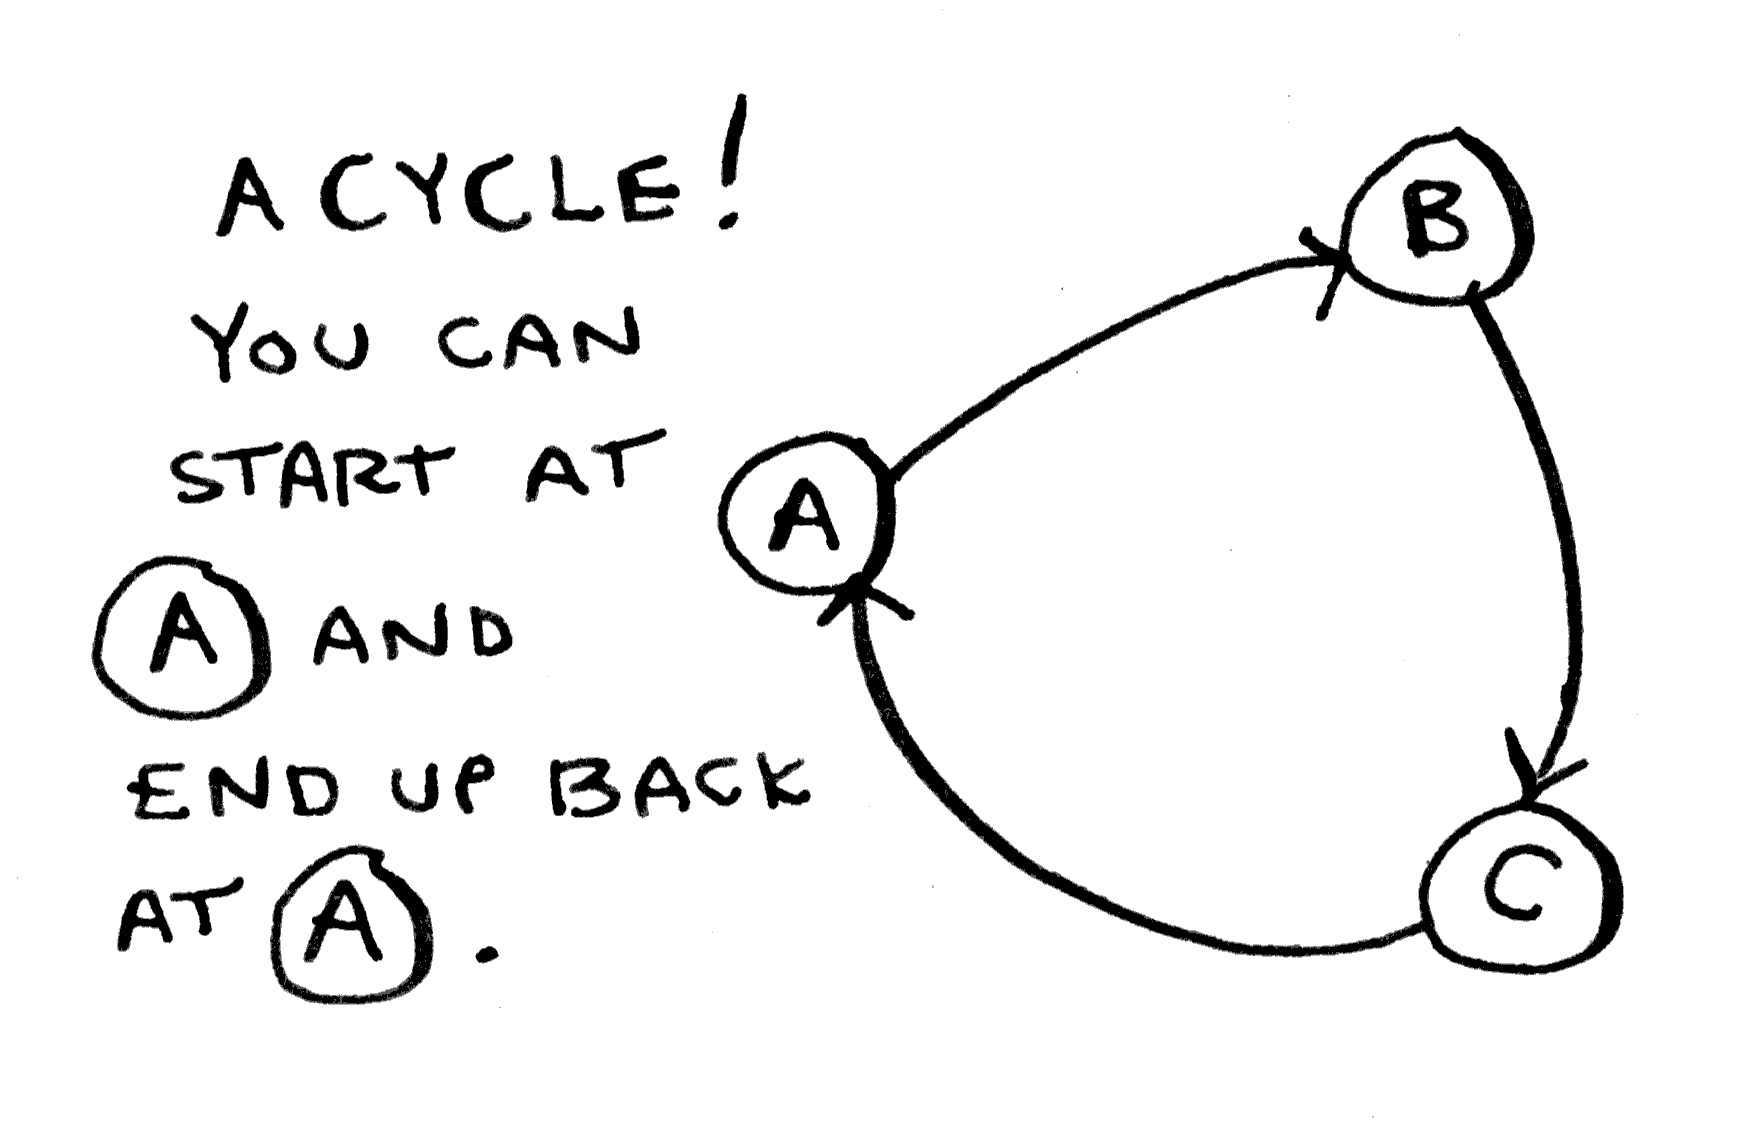 A CYCLE!
YOU CAN
START AT
A AND
END UP BACK
AT A.
B
A
C